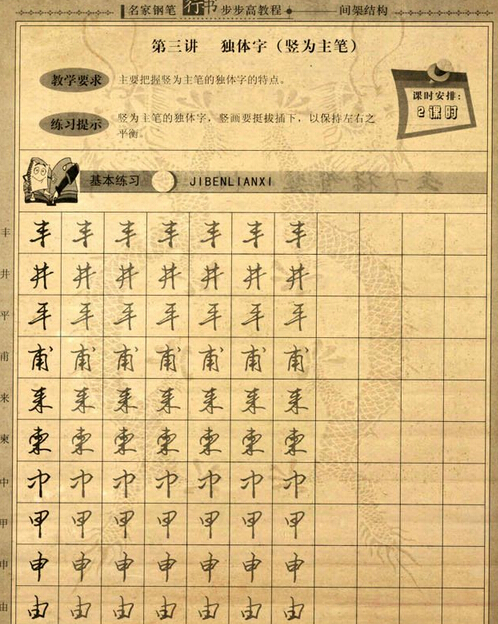 名家钢笔 行书 步步高教程 间架结构
第三讲 独体字（竖为主笔）
教学要求 主要把握竖为主笔的独体字的特点。
课时安排：
2课时
练习提示 竖为主笔的独体字，竖画要挺拔插下，以保持左右之
平衡。
基本练习 JIBENLIANXI
丰 丰 丰 丰 丰 丰 丰 丰
井 井 井 井 井 井 井 井
平 平 平 平 平 平 平 平
甫 甫 甫 甫 甫 甫 甫 甫
来 来 来 来 来 来 来 来
柬 柬 柬 柬 柬 柬 柬 柬
中 中 中 中 中 中 中 中
甲 甲 甲 甲 甲 甲 甲 甲
申 申 申 申 申 申 申 申
由 由 由 由 由 由 由 由